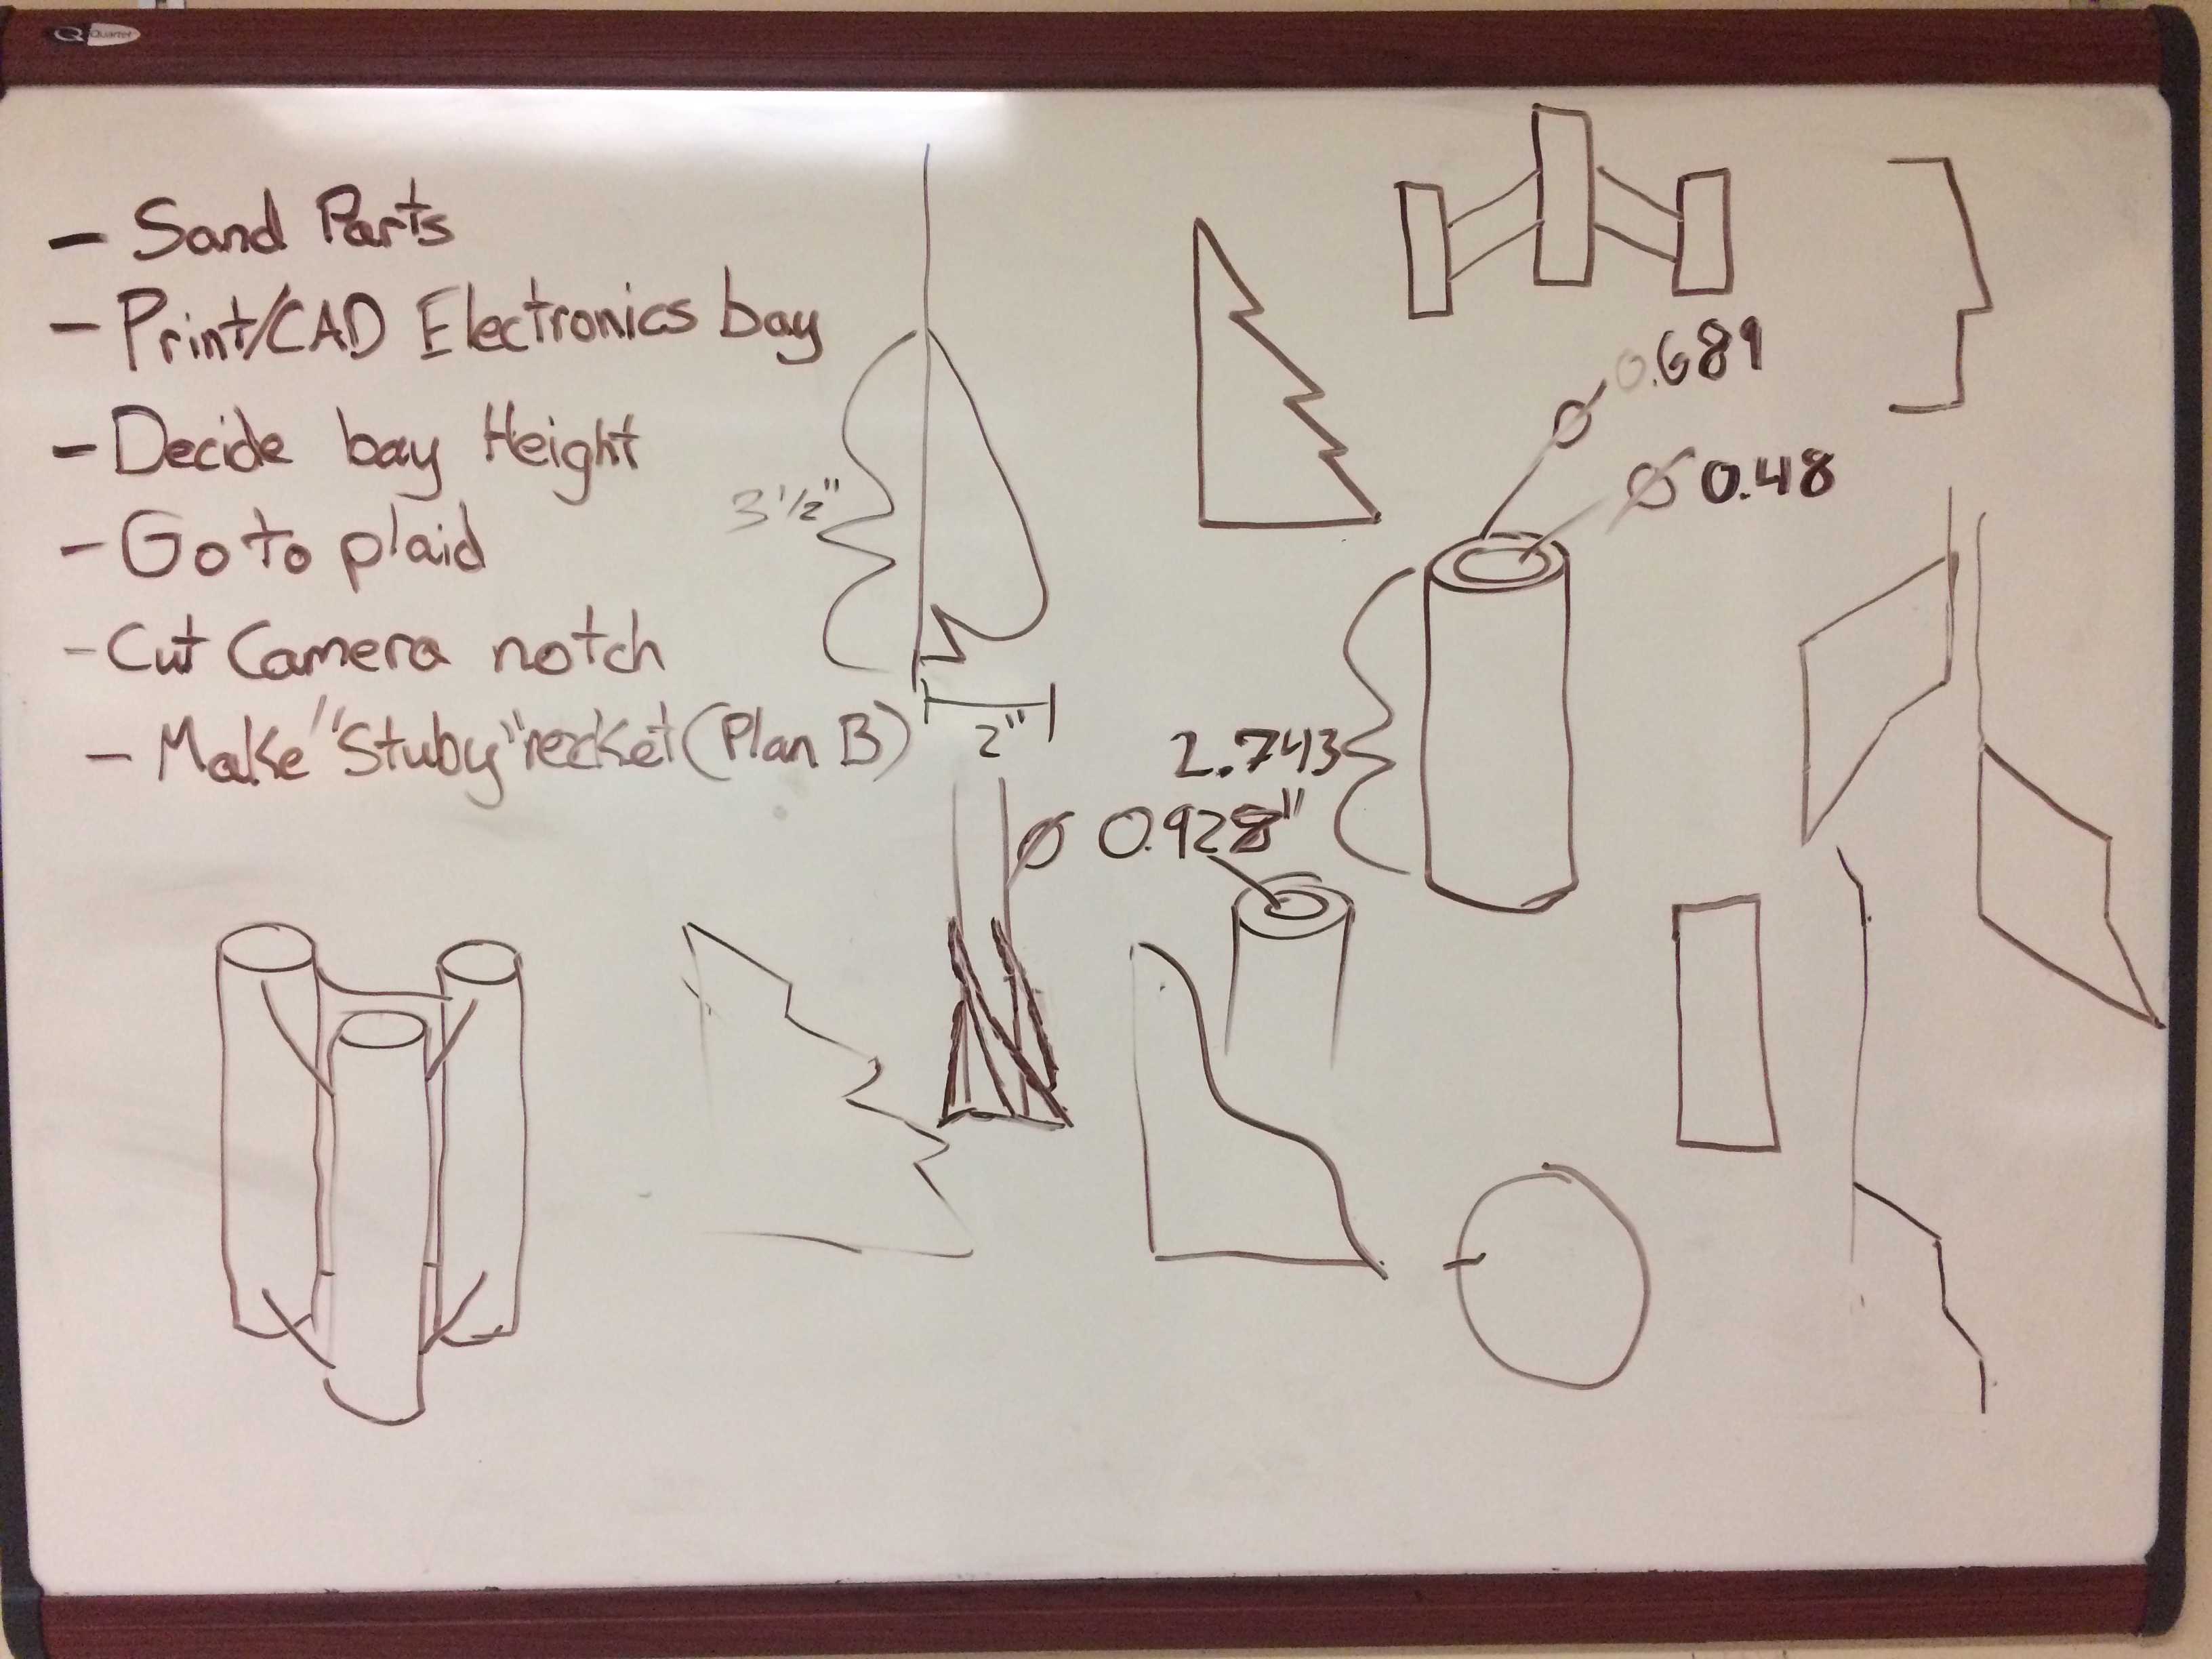 Quartet
- Sand Parts
- Print/CAD Electronics bay
- Decide bay Height
- Go to plaid
- Cut Camera notch
- Make "Stuby" rocket (Plan B)
3 1/2"
2"
Ø 0.689
Ø 0.48
2.743
Ø 0.928"